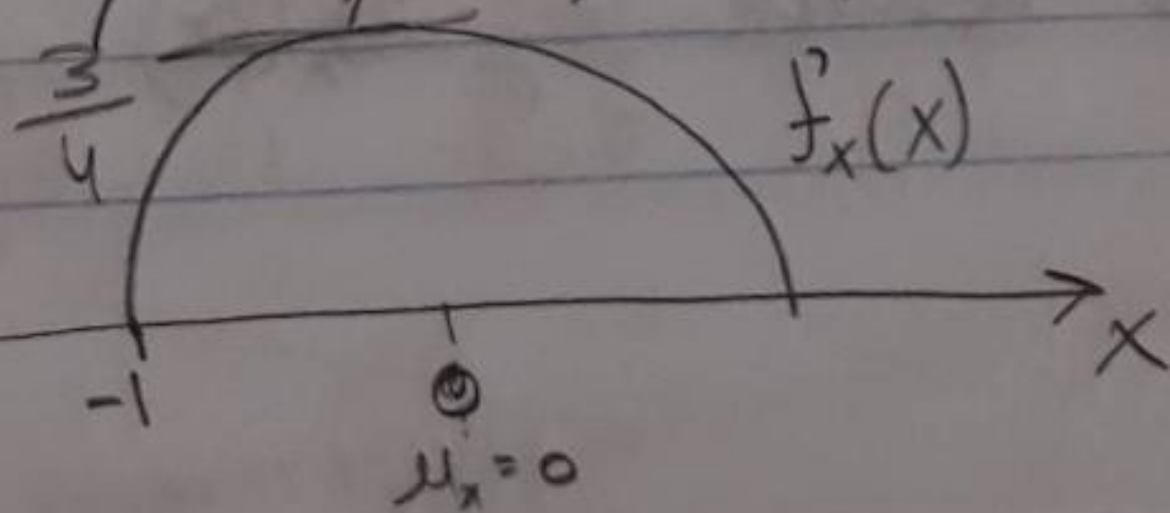 3/4
fₓ(x)
-1
0
x
μₓ = 0